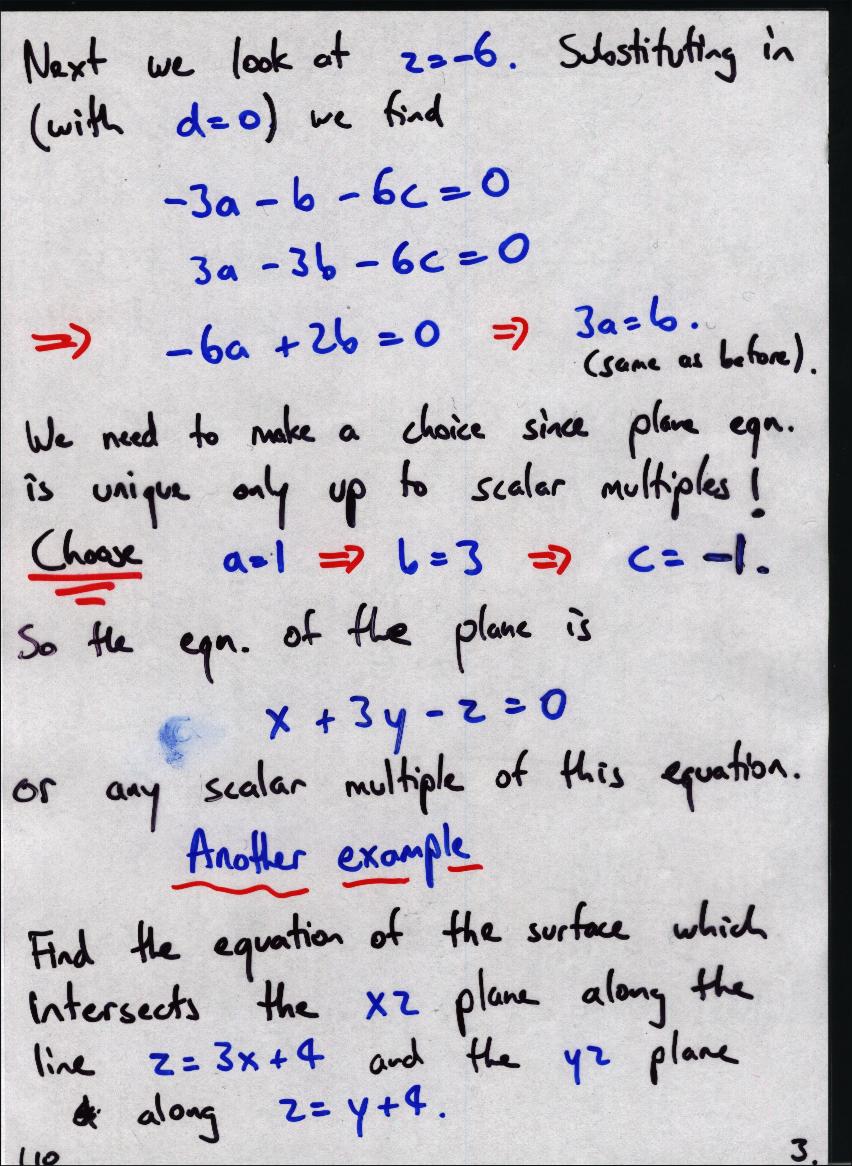 Next we look at z=-6. Substituting in
(with d=0) we find
-3a - b - 6c = 0
3a - 3b - 6c = 0
⇒ -6a + 2b = 0 ⇒ 3a=b.
(same as before).
We need to make a choice since plane eqn.
is unique only up to scalar multiples!
Choose a=1 ⇒ b=3 ⇒ c= -1.
So the eqn. of the plane is
x + 3y - z = 0
or any scalar multiple of this equation.
Another example
Find the equation of the surface which
intersects the xz plane along the
line z=3x+4 and the yz plane
along z=y+4.
3.